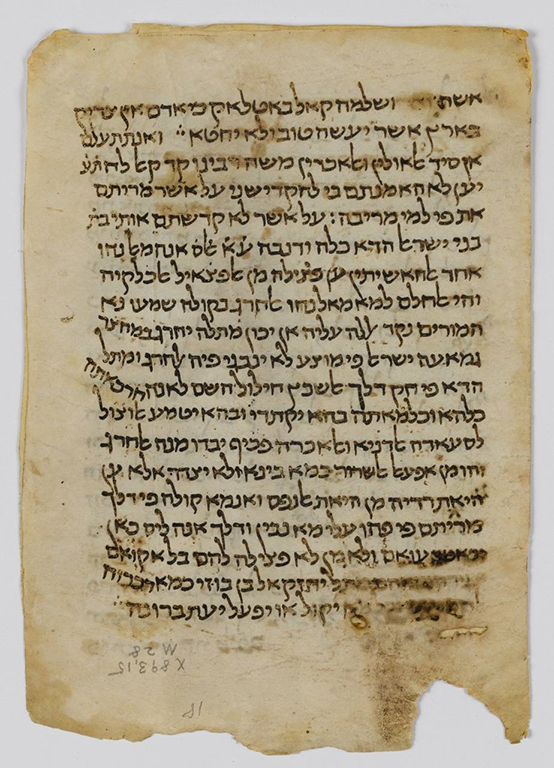 ושלמה קאל באטלאק כי אדם אין צדיק
בארץ אשר יעשה טוב ולא יחטא ואנת תעלם
אן סיד אלאולין ואלאכרין משה רבינו קד קאל לה תע
יען לא האמנתם בי להקדישני על אשר מריתם
את פי למי מריבה: על אשר לא קדשתם אותי בת
בני ישראל הדא כלה ודנבה ע̇א אלס אנה מאל נחו
אחד אלחאשיתין ען פצילה מן אלפצאיל אלכלקיה
והי אלחלם למא מאל נחו אלחרג בקולה שמעו נא
המורים נקד אללה עליה אן יכון מתלה יחרג במחצר
גמאעה ישראל פי מוצע לא ינבגי פיה אלחרג ומתל
הדא פי חק דלך אלשכץ חילול השם לאנה חרכאתה
כלהא וכלמאתה בהא יקתדי ובהא יטמע אלוצול
לסעאדה אלדניא ואלאכרה פכיף יבדו מנה אלחרג
והו מן אפעאל אלשרור כמא בינא ולא יצדר אלא ען
היאת רדיה מן היאת אלנפס ואנמא קולה פי דלך
מריתם פי פהו עלי מא נבין ודלך אנה ליס כאן
יכאטב עואם ולא מן לא פצילה להם בל אקואם
יחזקאל בן בוזי כמא
יקול או יפעל יעתברונה
X893.15
M 28